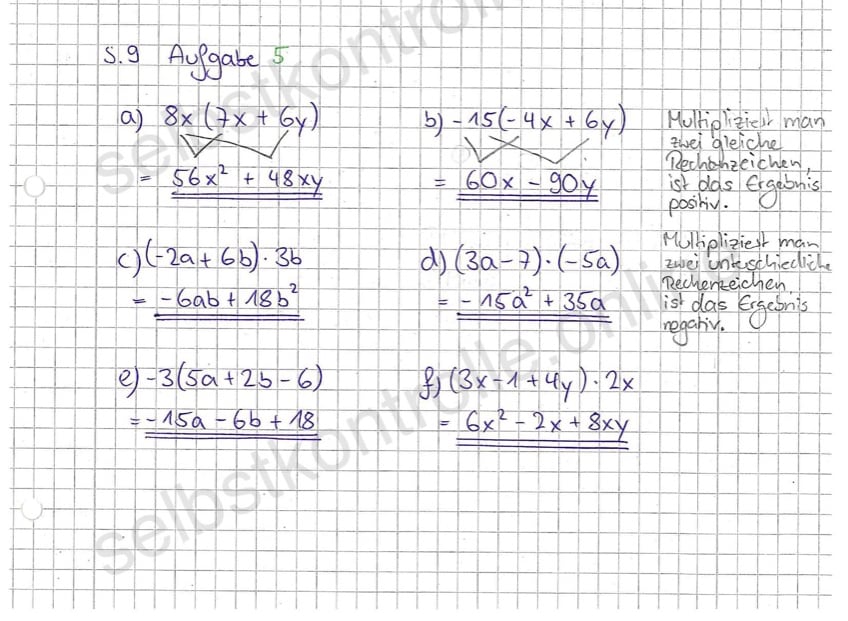 S.9 Aufgabe 5
a) 8x(7x + 6y)
= 56x² + 48xy
b) -15(-4x + 6y)
= 60x - 90y
Multipliziert man
zwei gleiche
Rechenzeichen,
ist das Ergebnis
positiv.
c) (-2a + 6b) · 3b
= -6ab + 18b²
d) (3a - 7) · (-5a)
= -15a² + 35a
Multipliziert man
zwei unterschiedliche
Rechenzeichen,
ist das Ergebnis
negativ.
e) -3(5a + 2b - 6)
= -15a - 6b + 18
f) (3x - 1 + 4y) · 2x
= 6x² - 2x + 8xy
selbstkontrolle.online
selbstkontrolle